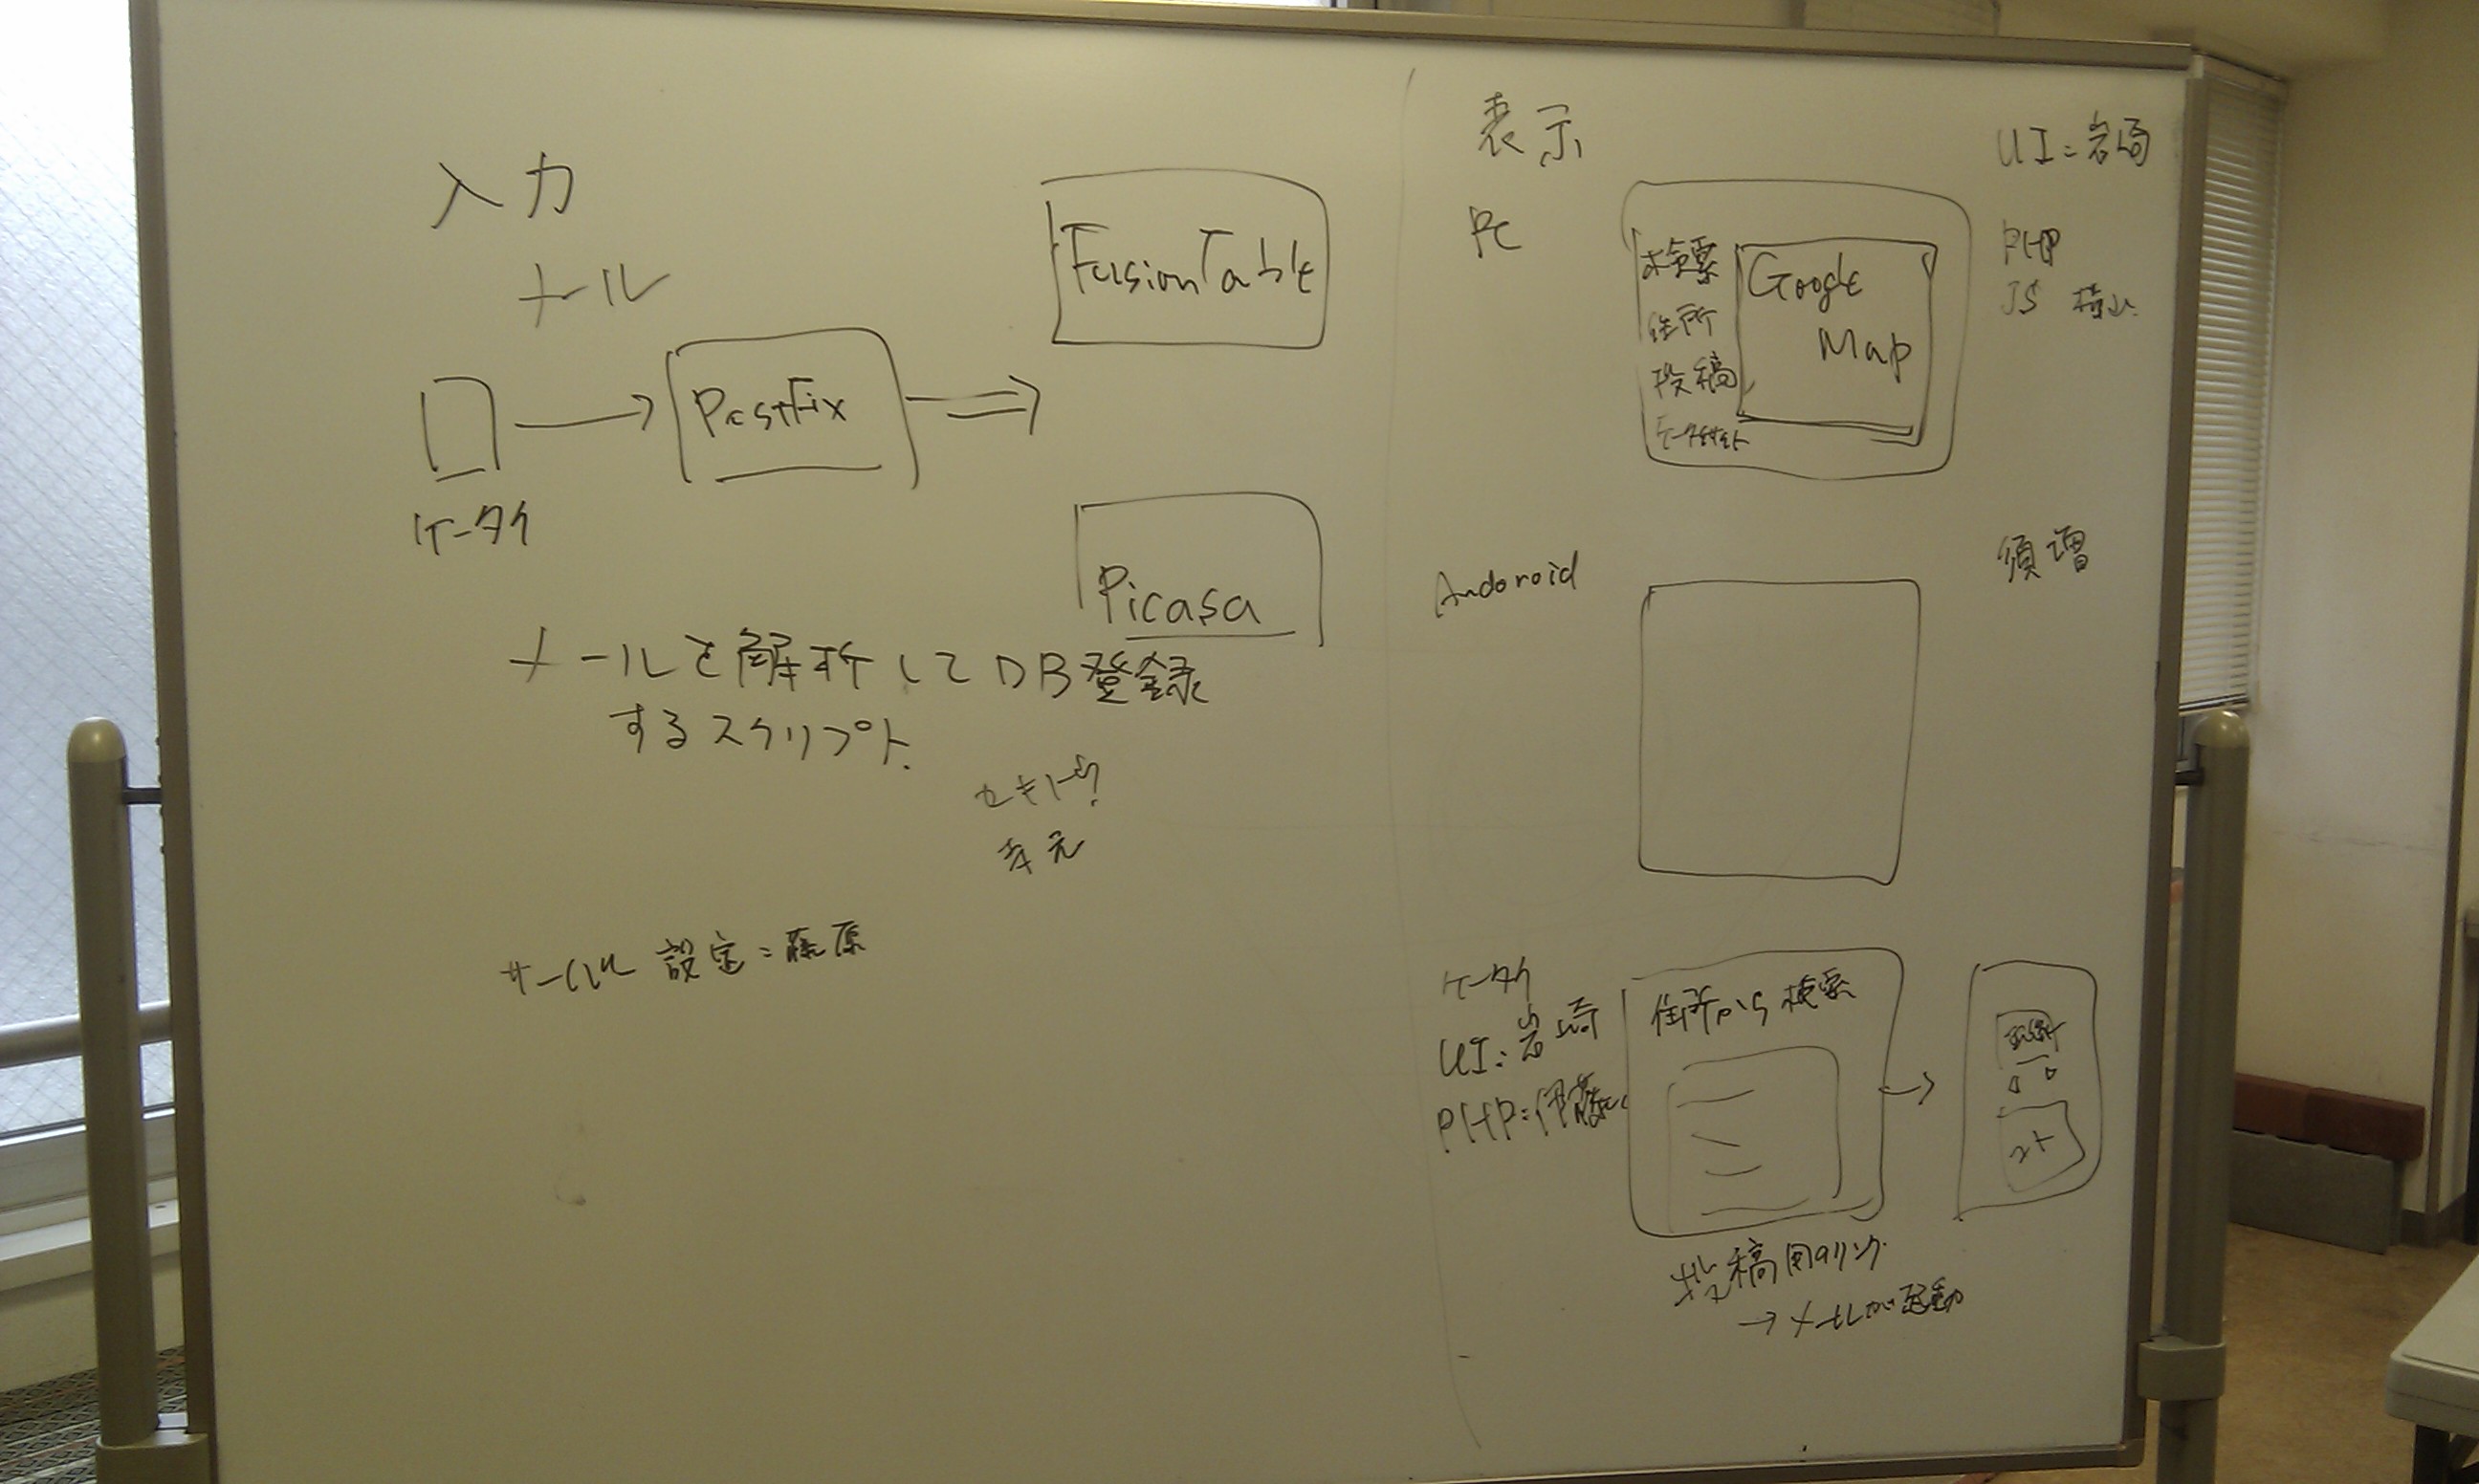 入力
メール
ケータイ
PostFix
FusionTable
Picasa
メールを解析してDB登録
するスクリプト.
寺元
サーバ 設定:藤原
表示
PC
検索
住所
投稿
ケータイサイト
Google
Map
UI:岩崎
PHP
JS
Andoroid
須増
ケータイ
UI:岩崎
PHP:伊藤
住所から検索
コメ
投稿用のリンク
→メールが起動